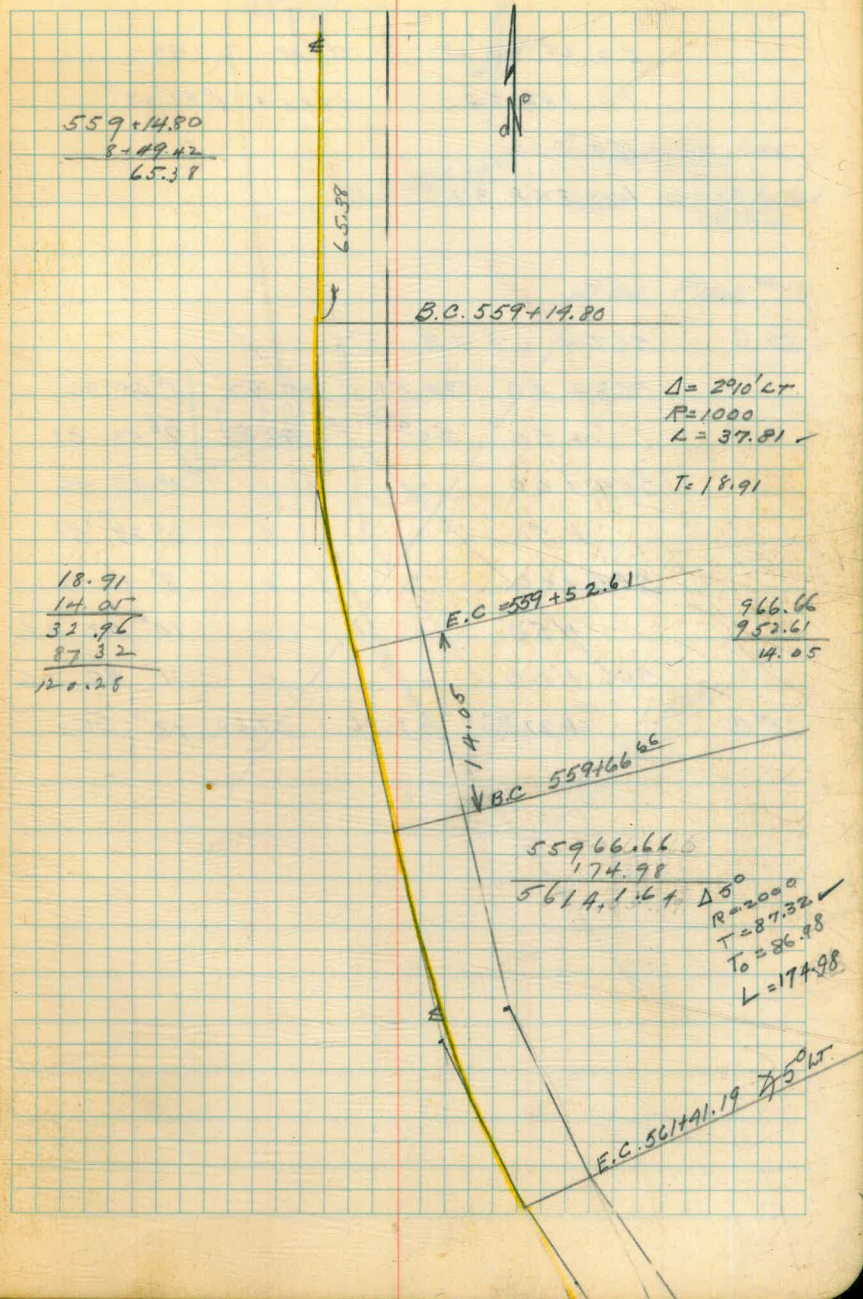 ℄
559+14.80
8+49.42
65.38
65.38
B.C. 559+14.80
Δ = 2°10' LT
R=1000
L = 37.81 ✓
T= 18.91
18.91
14.05
32.96
87 32
120.28
E.C =559+52.61
966.66
952.61
14.05
14.05
B.C 559+66 66
55966.66
174.98
56141.64
Δ 5°
R=2000
T=87.32 ✓
To=86.98
L=174.98
E.C. 561+41.19
5° LT.